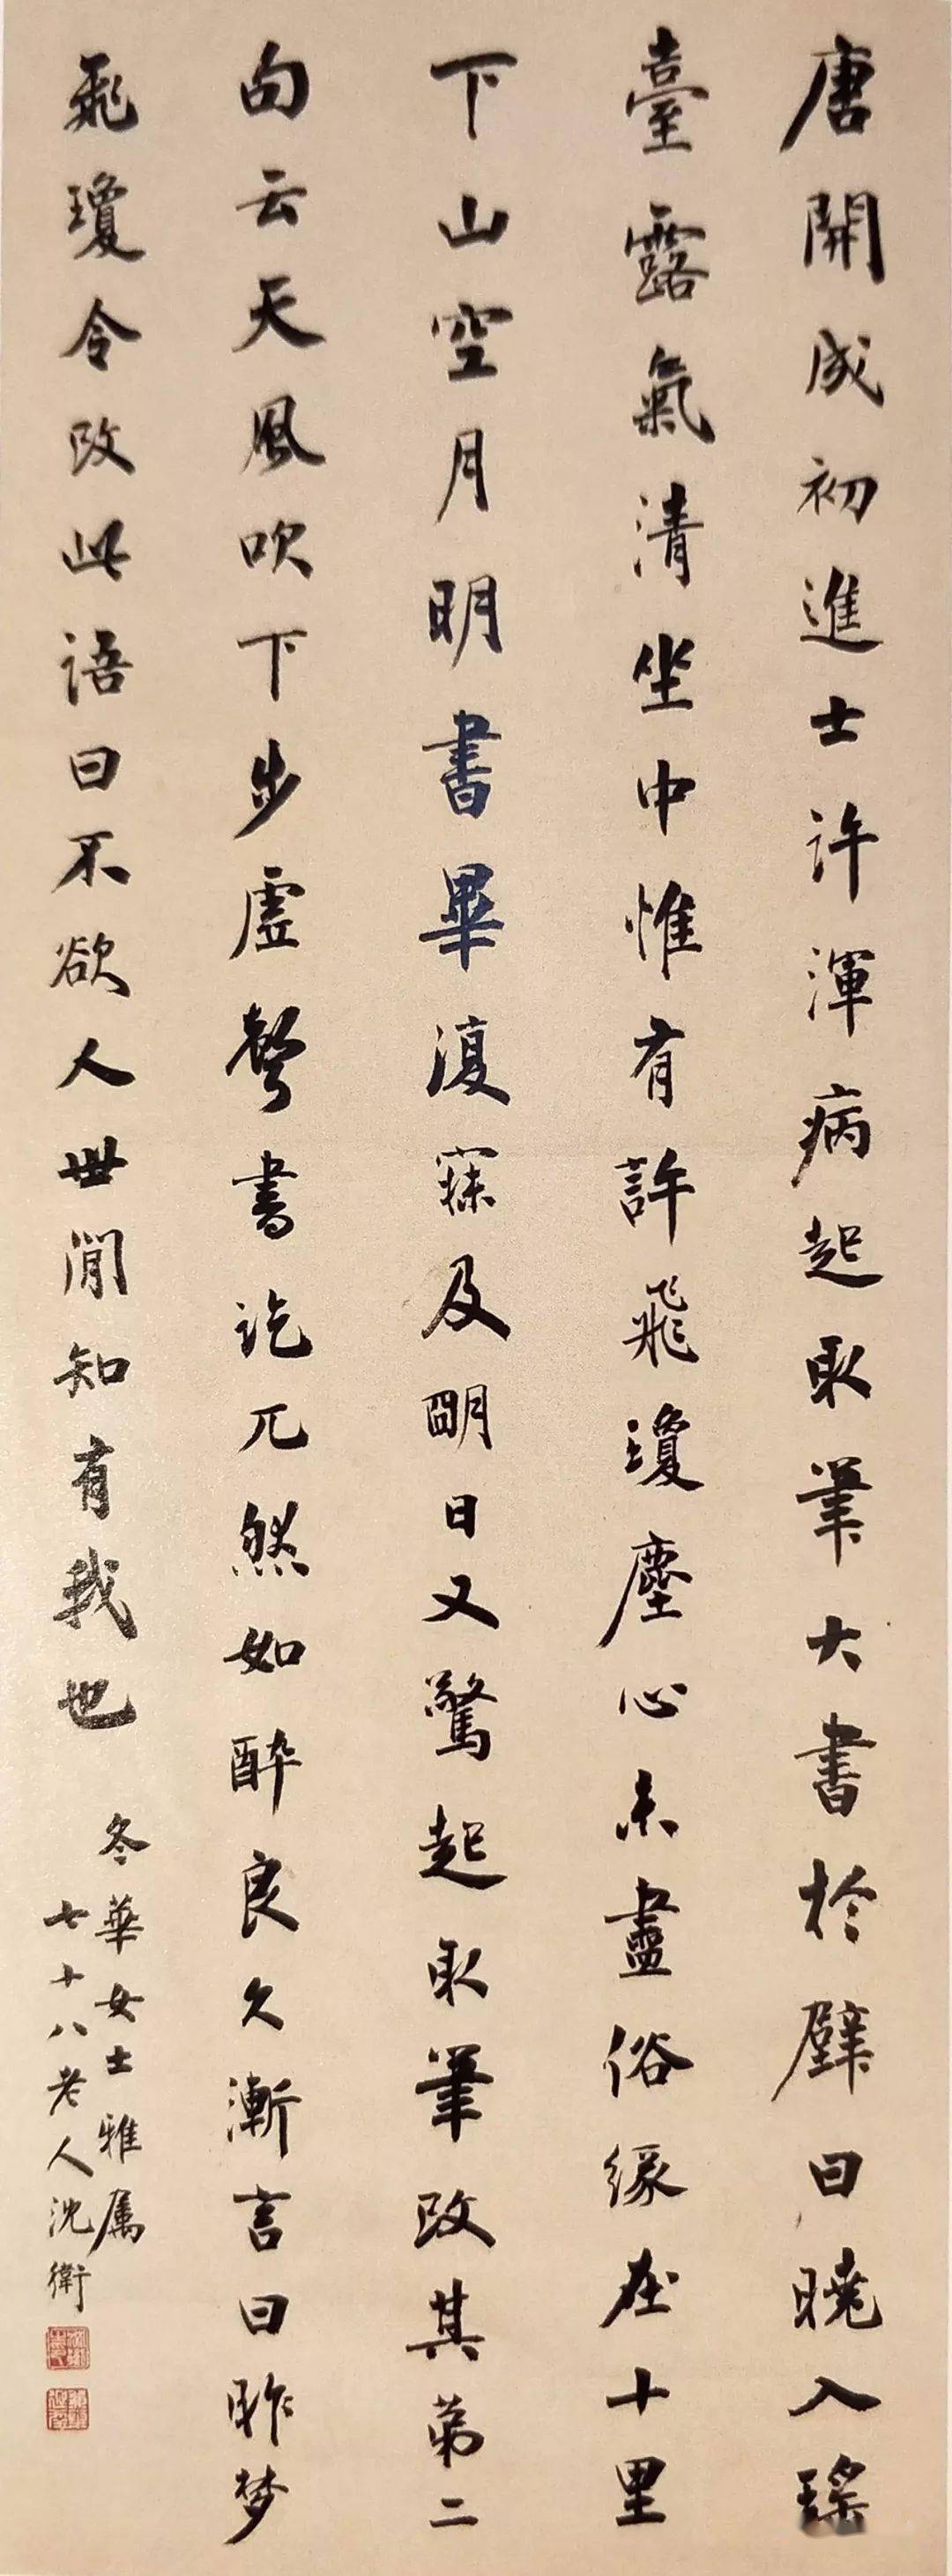 唐開成初進士許渾病起取筆大書於壁曰曉入瑤
臺露氣清坐中惟有許飛瓊塵心未盡俗緣在十里
下山空月明書畢復寐及明日又驚起取筆改其第二
句云天風吹下步虛聲書訖兀然如醉良久漸言曰昨梦
飛瓊令改此語曰不欲人世間知有我也
冬華女士雅属
七十八老人沈衛